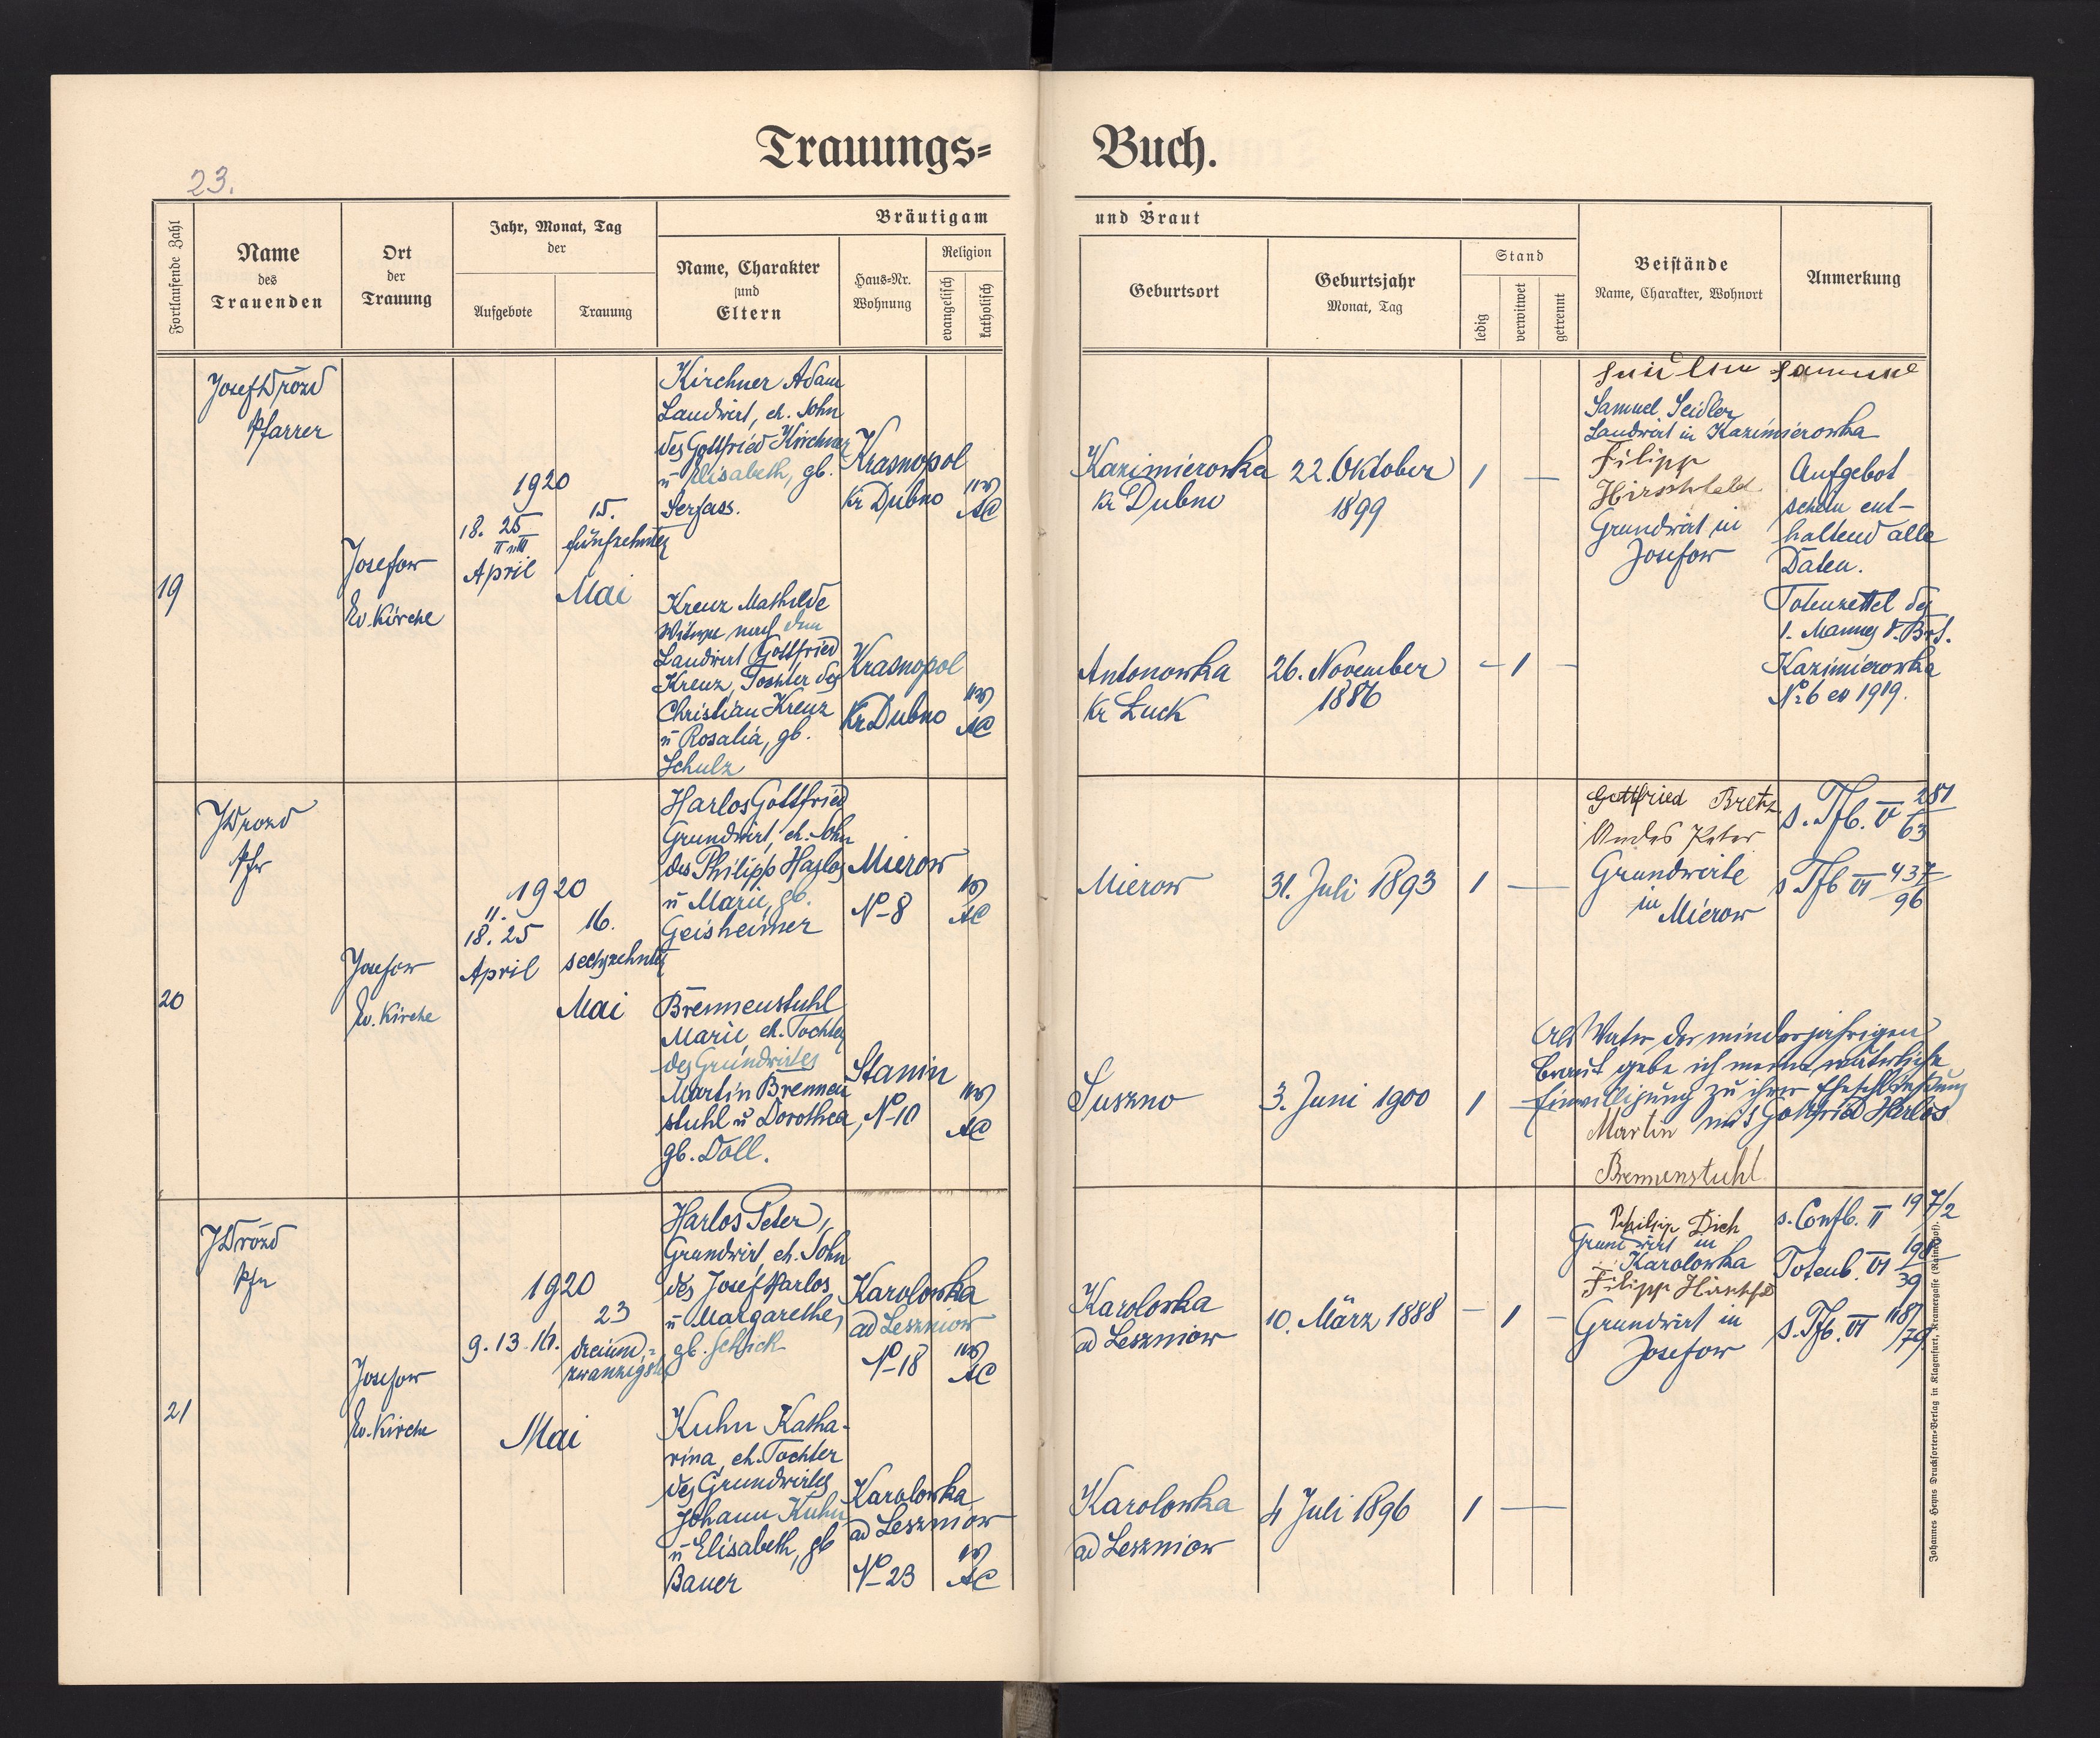 Trauungs=
Buch.
23.
Fortlaufende Zahl
Name
des
Trauenden
Ort
der
Trauung
Jahr, Monat, Tag
der
Aufgebote
Trauung
Bräutigam
Name, Charakter
und
Eltern
Haus=Nr.
Wohnung
Religion
evangelisch
katholisch
und Braut
Geburtsort
Geburtsjahr
Monat, Tag
Stand
ledig
verwitwet
getrennt
Beistände
Name, Charakter, Wohnort
Anmerkung
19
Josef Drozd
Pfarrer
Josefow
Ev. Kirche
1920
18. 25
April
15.
fünfzehnter
Mai
Kirchner Adam
Landwirt, eh. Sohn
des Gottfried Kirchner
u Elisabeth, gb.
Serfass.
Krasnopol
Kr Dubno
AC
Kazimierowka
Kr Dubno
22. Oktober
1899
1 —
Samuel Seidler
Landwirt in Kazimierowka
Filipp
Hirschfeld
Grundwirt in
Josefow
Aufgebot
schein ent-
haltend alle
Daten.
Totenzettel des
1. Mannes d. Brt.
Kazimierowka
No 6 ex 1919.
Kreuz Mathilde
Witwe nach dem
Landwirt Gottfried
Kreuz, Tochter des
Christian Kreuz
u Rosalia, gb.
Schulz
Krasnopol
Kr Dubno
AC
Antonowka
Kr Luck
26. November
1886
— 1 —
20
J Drozd
Pfr
Josefow
Ev. Kirche
1920
11.
18. 25
April
16.
sechzehnter
Mai
Harlos Gottfried
Grundwirt, eh. Sohn
des Philipp Harlos
u Marie, gb.
Geisheimer
Mierow
No 8
AC
Mierow
31. Juli 1893
1 —
Gottfried Bretz
Peter
Grundwirte
in Mierow
s. Tfb. V 281/63
s Tfb VI 437/96
Brennenstuhl
Marie eh. Tochter
des Grundwirtes
Martin Brennen
stuhl u Dorothea,
gb. Doll.
Stanin
No 10
AC
Suszno
3. Juni 1900
1 —
Als Vater der minderjährigen
Braut gebe ich meine väterliche
Einwilligung zu ihrer Eheschließung
mit Gottfried Harlos
Martin
Brennenstuhl
21
J Drozd
Pfr
Josefow
Ev. Kirche
1920
9. 13. 16.
23
dreiund=
zwanzigster
Mai
Harlos Peter,
Grundwirt, eh. Sohn
des Josef Harlos
u Margarethe,
gb. Schick
Karolowka
ad Leszniow
No 18
AC
Karolowka
ad Leszniow
10. März 1888
— 1 —
Philipp Dich
Grundwirt in
Karolowka
Filipp
Grundwirt in
Josefow
s. Confb. II 197/2
Totenb. VI 198/39
s. Tfb. VI 118/79
Kuhn Katha-
rina, eh. Tochter
des Grundwirtes
Johann Kuhn
u Elisabeth, gb
Bauer
Karolowka
ad Leszniow
No 23
AC
Karolowka
ad Leszniow
4 Juli 1896
1 —
Johannes Heyns Druckforten=Verlag in Klagenfurt, Kramergasse (Rainerhof).